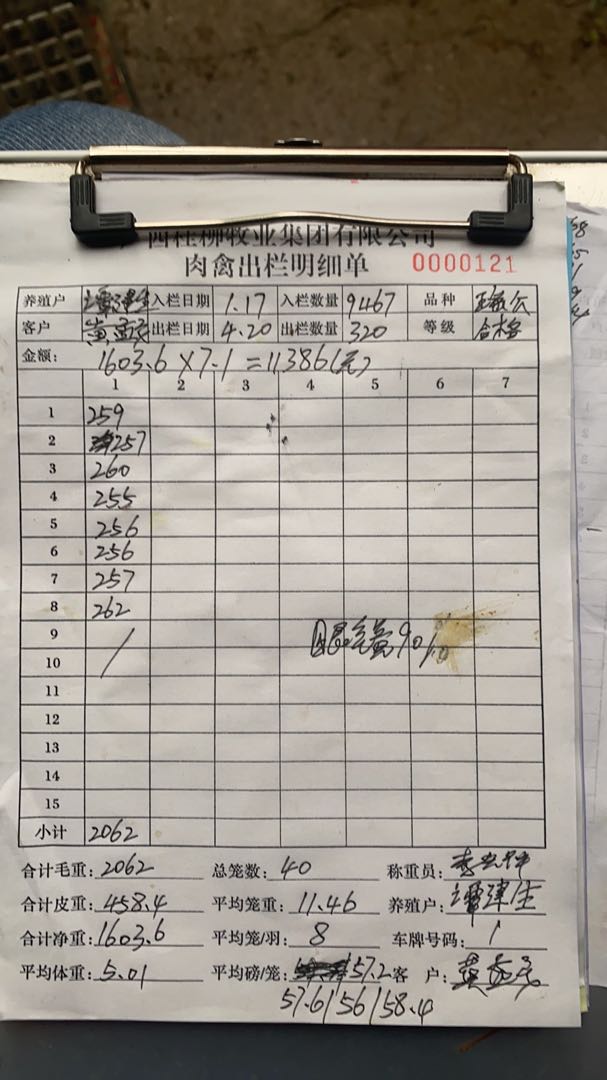 西桂柳牧业集团有限公司
肉禽出栏明细单 0000121
养殖户 谭津生 入栏日期 1.17 入栏数量 9467 品种
客户 出栏日期 4.20 出栏数量 320 等级 合格
金额: 1603.6×7.1=11386(元)
1 2 3 4 5 6 7
1 259
2 257
3 260
4 255
5 256
6 256
7 257
8 262
9 /
10 90%
11
12
13
14
15
小计 2062
合计毛重: 2062 总笼数: 40 称重员:
合计皮重: 458.4 平均笼重: 11.46 养殖户: 谭津生
合计净重: 1603.6 平均笼/羽: 8 车牌号码: /
平均体重: 5.01 平均磅/笼: 57.2 客 户:
57.6/56/58.4